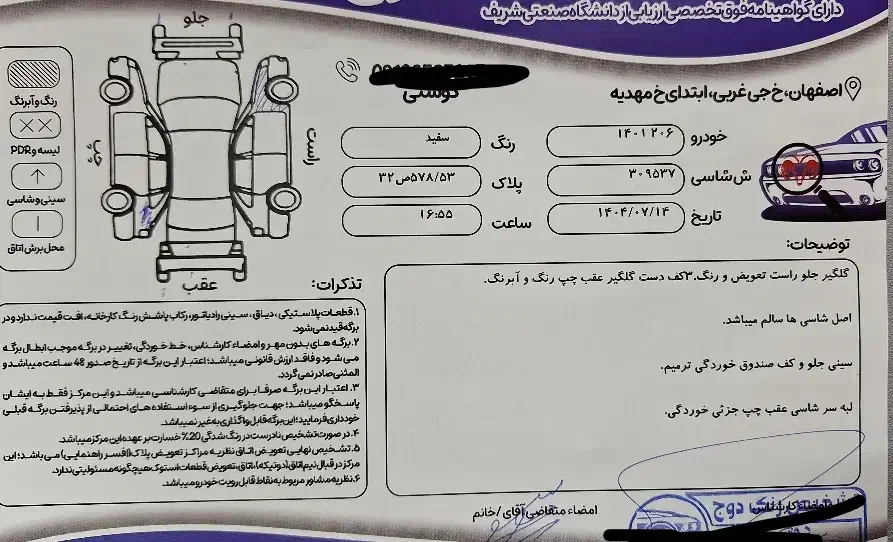 دارای گواهینامه فوق تخصصی ارزیابی از دانشگاه صنعتی شریف
اصفهان، خ جی غربی، ابتدای خ مهدیه
خودرو ۲۰۶ ۱۴۰۱
رنگ سفید
ش شاسی ۳۰۹۵۳۷
پلاک ۵۷۸/۵۳ص۳۲
تاریخ ۱۴۰۴/۰۷/۱۴
ساعت ۱۶:۵۵
جلو
راست
چپ
عقب
رنگ و آبرنگ
لیسه و PDR
سینی و شاسی
محل برش اتاق
توضیحات:
گلگیر جلو راست تعویض و رنگ.۳کف دست گلگیر عقب چپ رنگ و آبرنگ.
اصل شاسی ها سالم میباشد.
سینی جلو و کف صندوق خوردگی ترمیم.
لبه سر شاسی عقب چپ جزئی خوردگی.
تذکرات:
۱. قطعات پلاستیکی، دیاق، سینی رادیاتور، رکاب پاشش رنگ کارخانه، افت قیمت ندارد و در
برگه قید نمی شود.
۲. برگه های بدون مهر و امضاء کارشناس، خط خوردگی، تغییر در برگه موجب ابطال برگه
می شود و فاقد ارزش قانونی میباشد؛ اعتبار این برگه از تاریخ صدور 48 ساعت میباشد و
المثنی صادر نمی گردد.
۳. اعتبار این برگه صرفا برای متقاضی کارشناسی میباشد و این مرکز فقط به ایشان
پاسخگو میباشد؛ جهت جلوگیری از سوء استفاده های احتمالی از پذیرفتن برگه قبلی
خودداری فرمایید؛ این برگه قابل واگذاری به غیر نمیباشد.
۴. در صورت تشخیص نادرست در رنگ شدگی 20% خسارت بر عهده این مرکز میباشد.
۵. تشخیص نهایی تعویض اتاق نظریه مراکز تعویض پلاک (افسر راهنمایی) می باشد؛ این
مرکز در قبال نیم اتاق (دوتیکه)، اتاق، تعویض قطعات استوک هیچگونه مسئولیتی ندارد.
۶. نظریه مشاور مربوط به نقاط قابل رویت خودرو میباشد.
امضاء کارشناس
امضاء متقاضی آقای/خانم